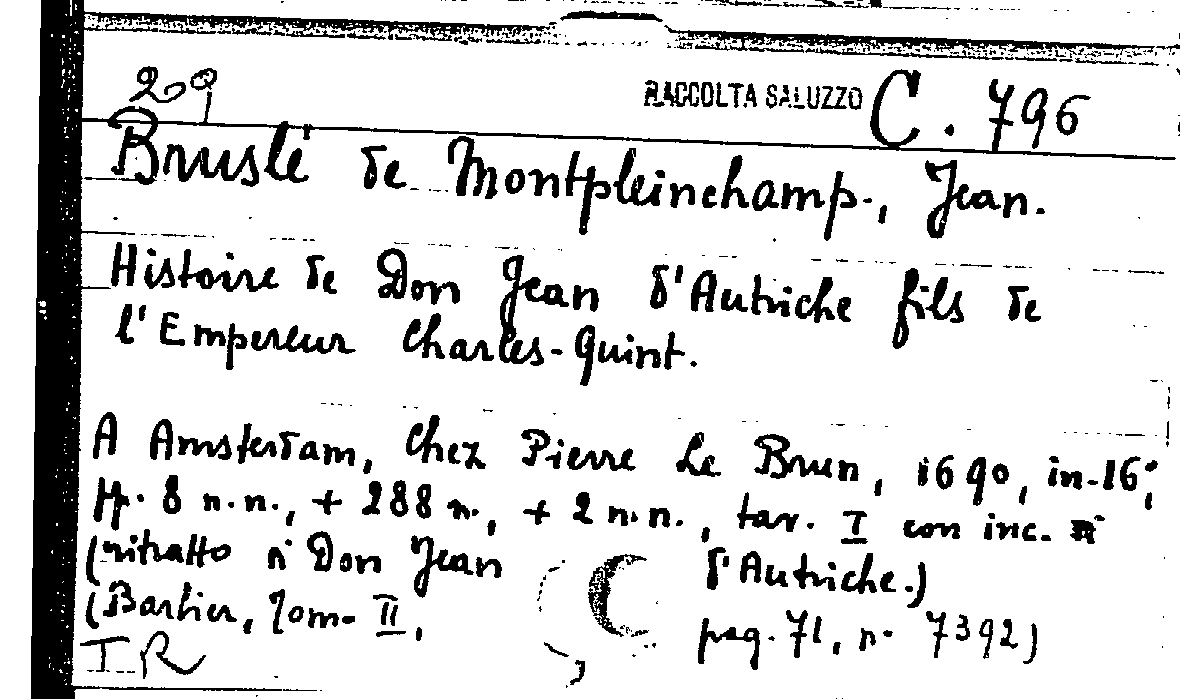 29
RACCOLTA SALUZZO C. 796
Bruslé de Montpleinchamp., Jean.
Histoire de Don Jean d'Autriche fils de
l'Empereur Charles-Quint.
A Amsterdam, Chez Pierre Le Brun, 1690, in-16°,
pp. 8 n.n., + 288 n., + 2 n.n., tav. I con inc.
(ritratto di Don Jean d'Autriche.)
(Barbier, Tom. II, pag. 71, n. 7392)
IR